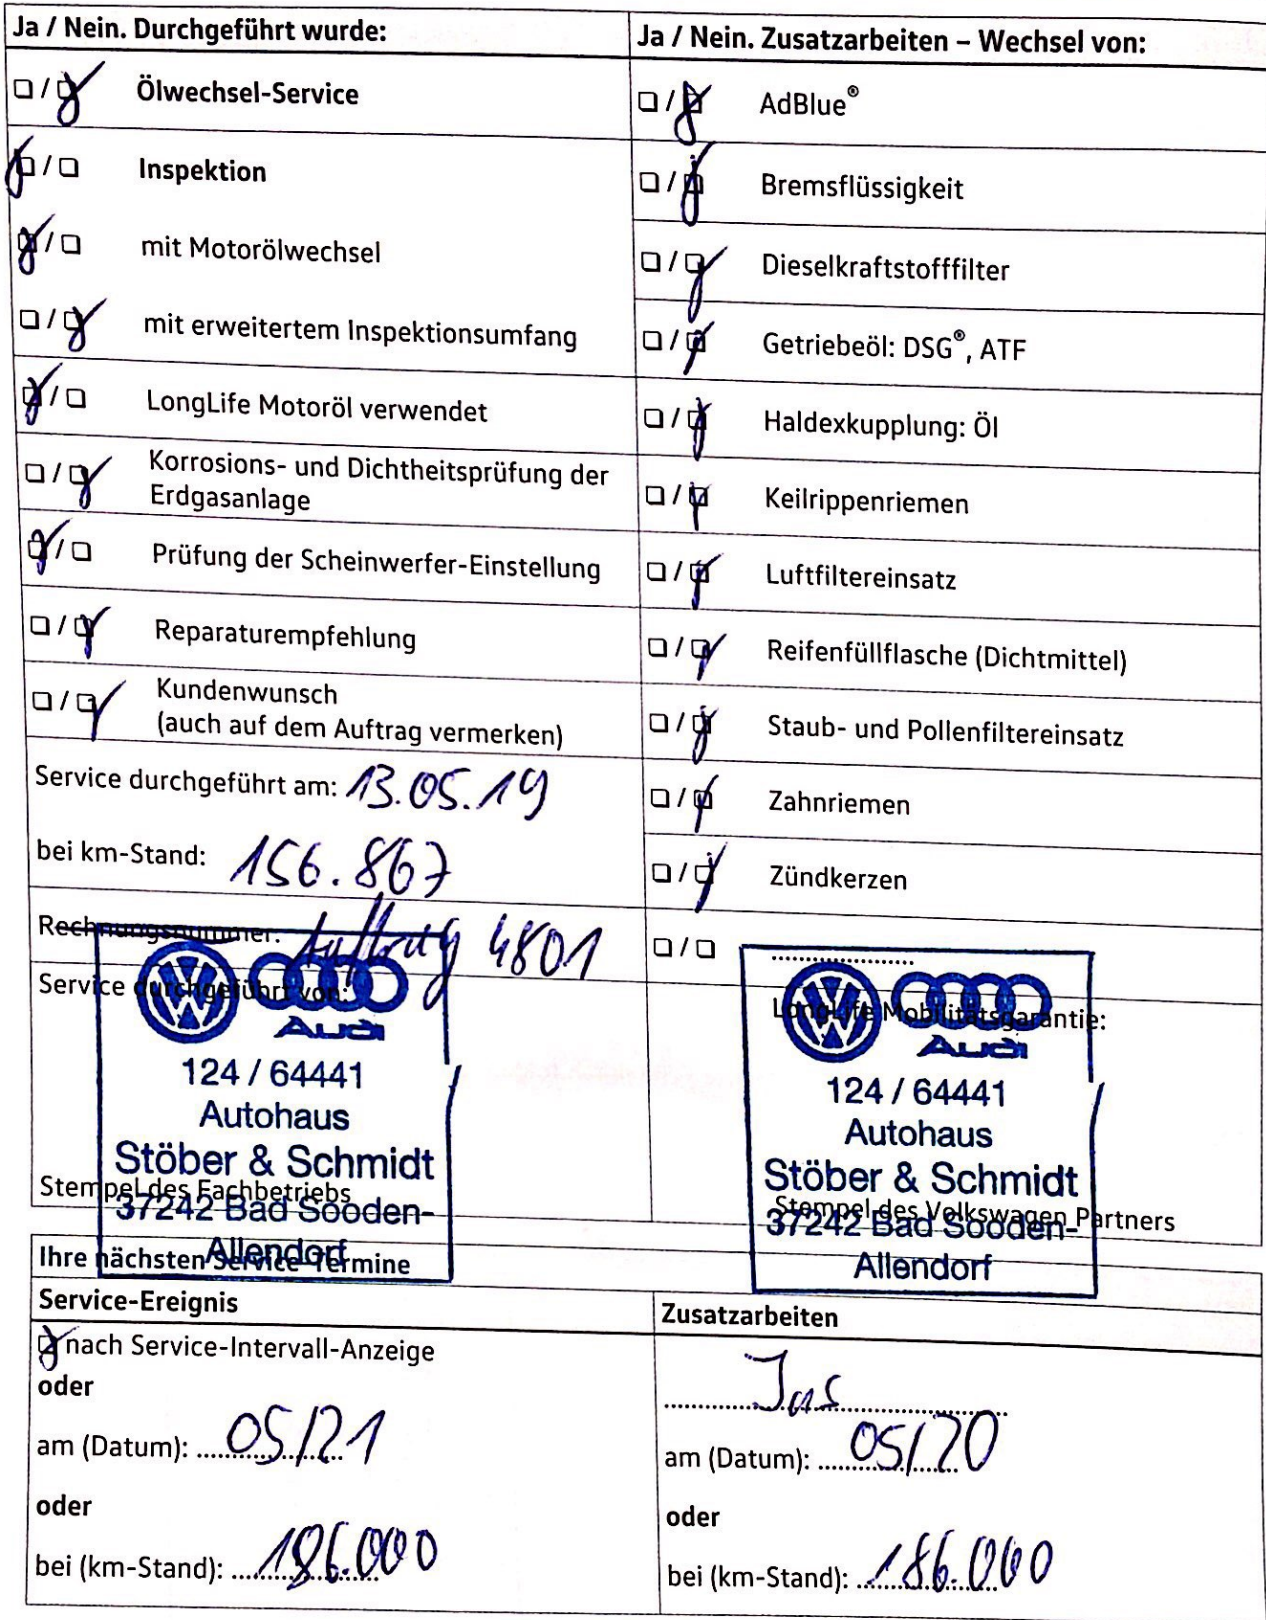 Ja / Nein. Durchgeführt wurde:
Ölwechsel-Service
Inspektion
mit Motorölwechsel
mit erweitertem Inspektionsumfang
LongLife Motoröl verwendet
Korrosions- und Dichtheitsprüfung der
Erdgasanlage
Prüfung der Scheinwerfer-Einstellung
Reparaturempfehlung
Kundenwunsch
(auch auf dem Auftrag vermerken)
Service durchgeführt am: 13.05.19
bei km-Stand: 156.867
Rechnungsnummer: Auftrag 4801
Service durchgeführt von:
Audi
124 / 64441
Autohaus
Stöber & Schmidt
37242 Bad Sooden-
Allendorf
Stempel des Fachbetriebs
Ja / Nein. Zusatzarbeiten – Wechsel von:
AdBlue®
Bremsflüssigkeit
Dieselkraftstofffilter
Getriebeöl: DSG®, ATF
Haldexkupplung: Öl
Keilrippenriemen
Luftfiltereinsatz
Reifenfüllflasche (Dichtmittel)
Staub- und Pollenfiltereinsatz
Zahnriemen
Zündkerzen
LongLife Mobilitätsgarantie:
Audi
124 / 64441
Autohaus
Stöber & Schmidt
37242 Bad Sooden-
Allendorf
Stempel des Volkswagen Partners
Ihre nächsten Service-Termine
Service-Ereignis
nach Service-Intervall-Anzeige
oder
am (Datum): 05/21
oder
bei (km-Stand): 186.000
Zusatzarbeiten
Jas
am (Datum): 05/20
oder
bei (km-Stand): 186.000